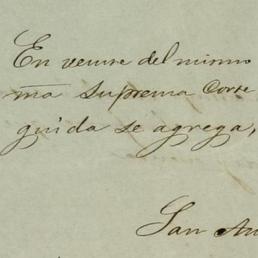 En veinte del mismo
ma Suprema Corte
guida se agrega,
San An